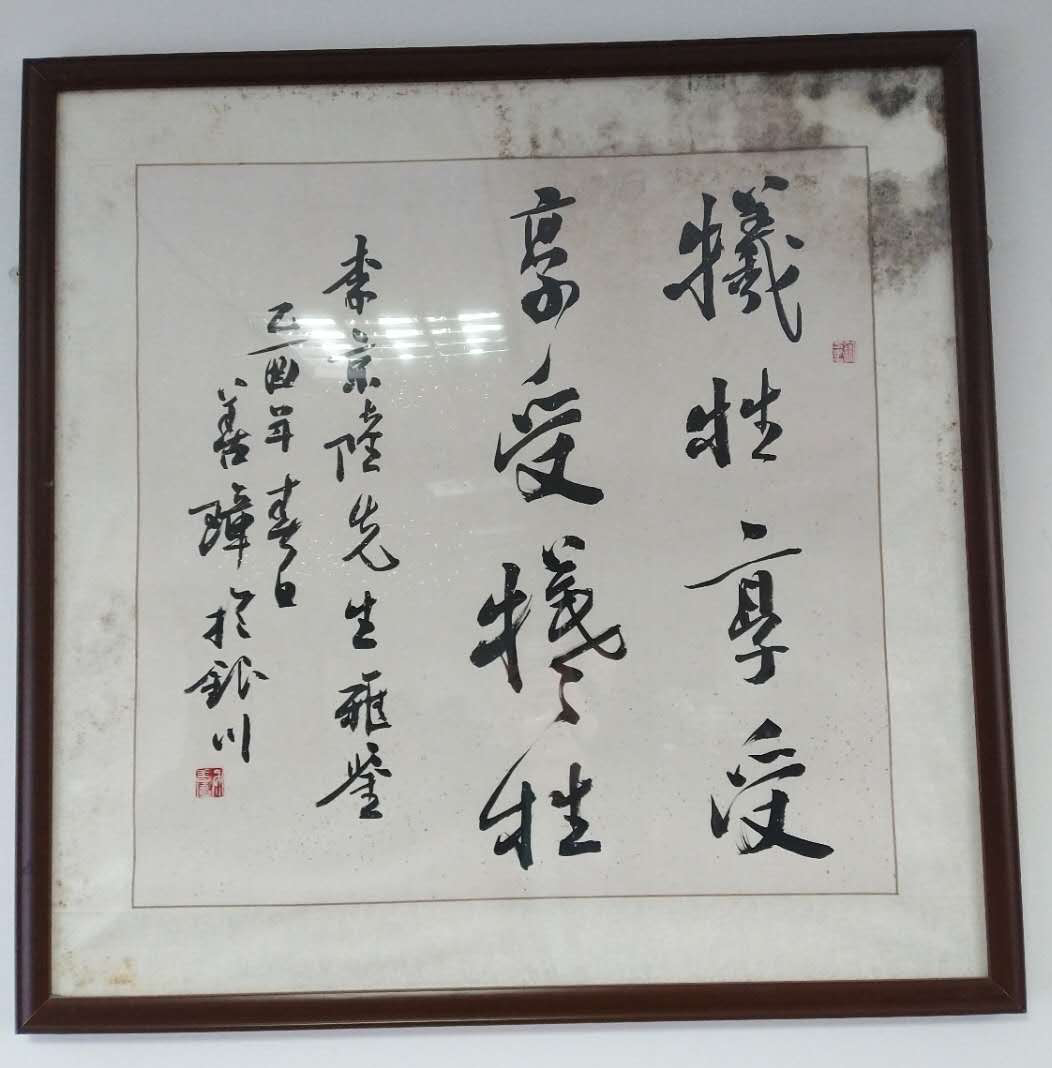 犧牲享受
享受犧牲
李京陸先生雅鑒
乙酉年春日
善璋於銀川